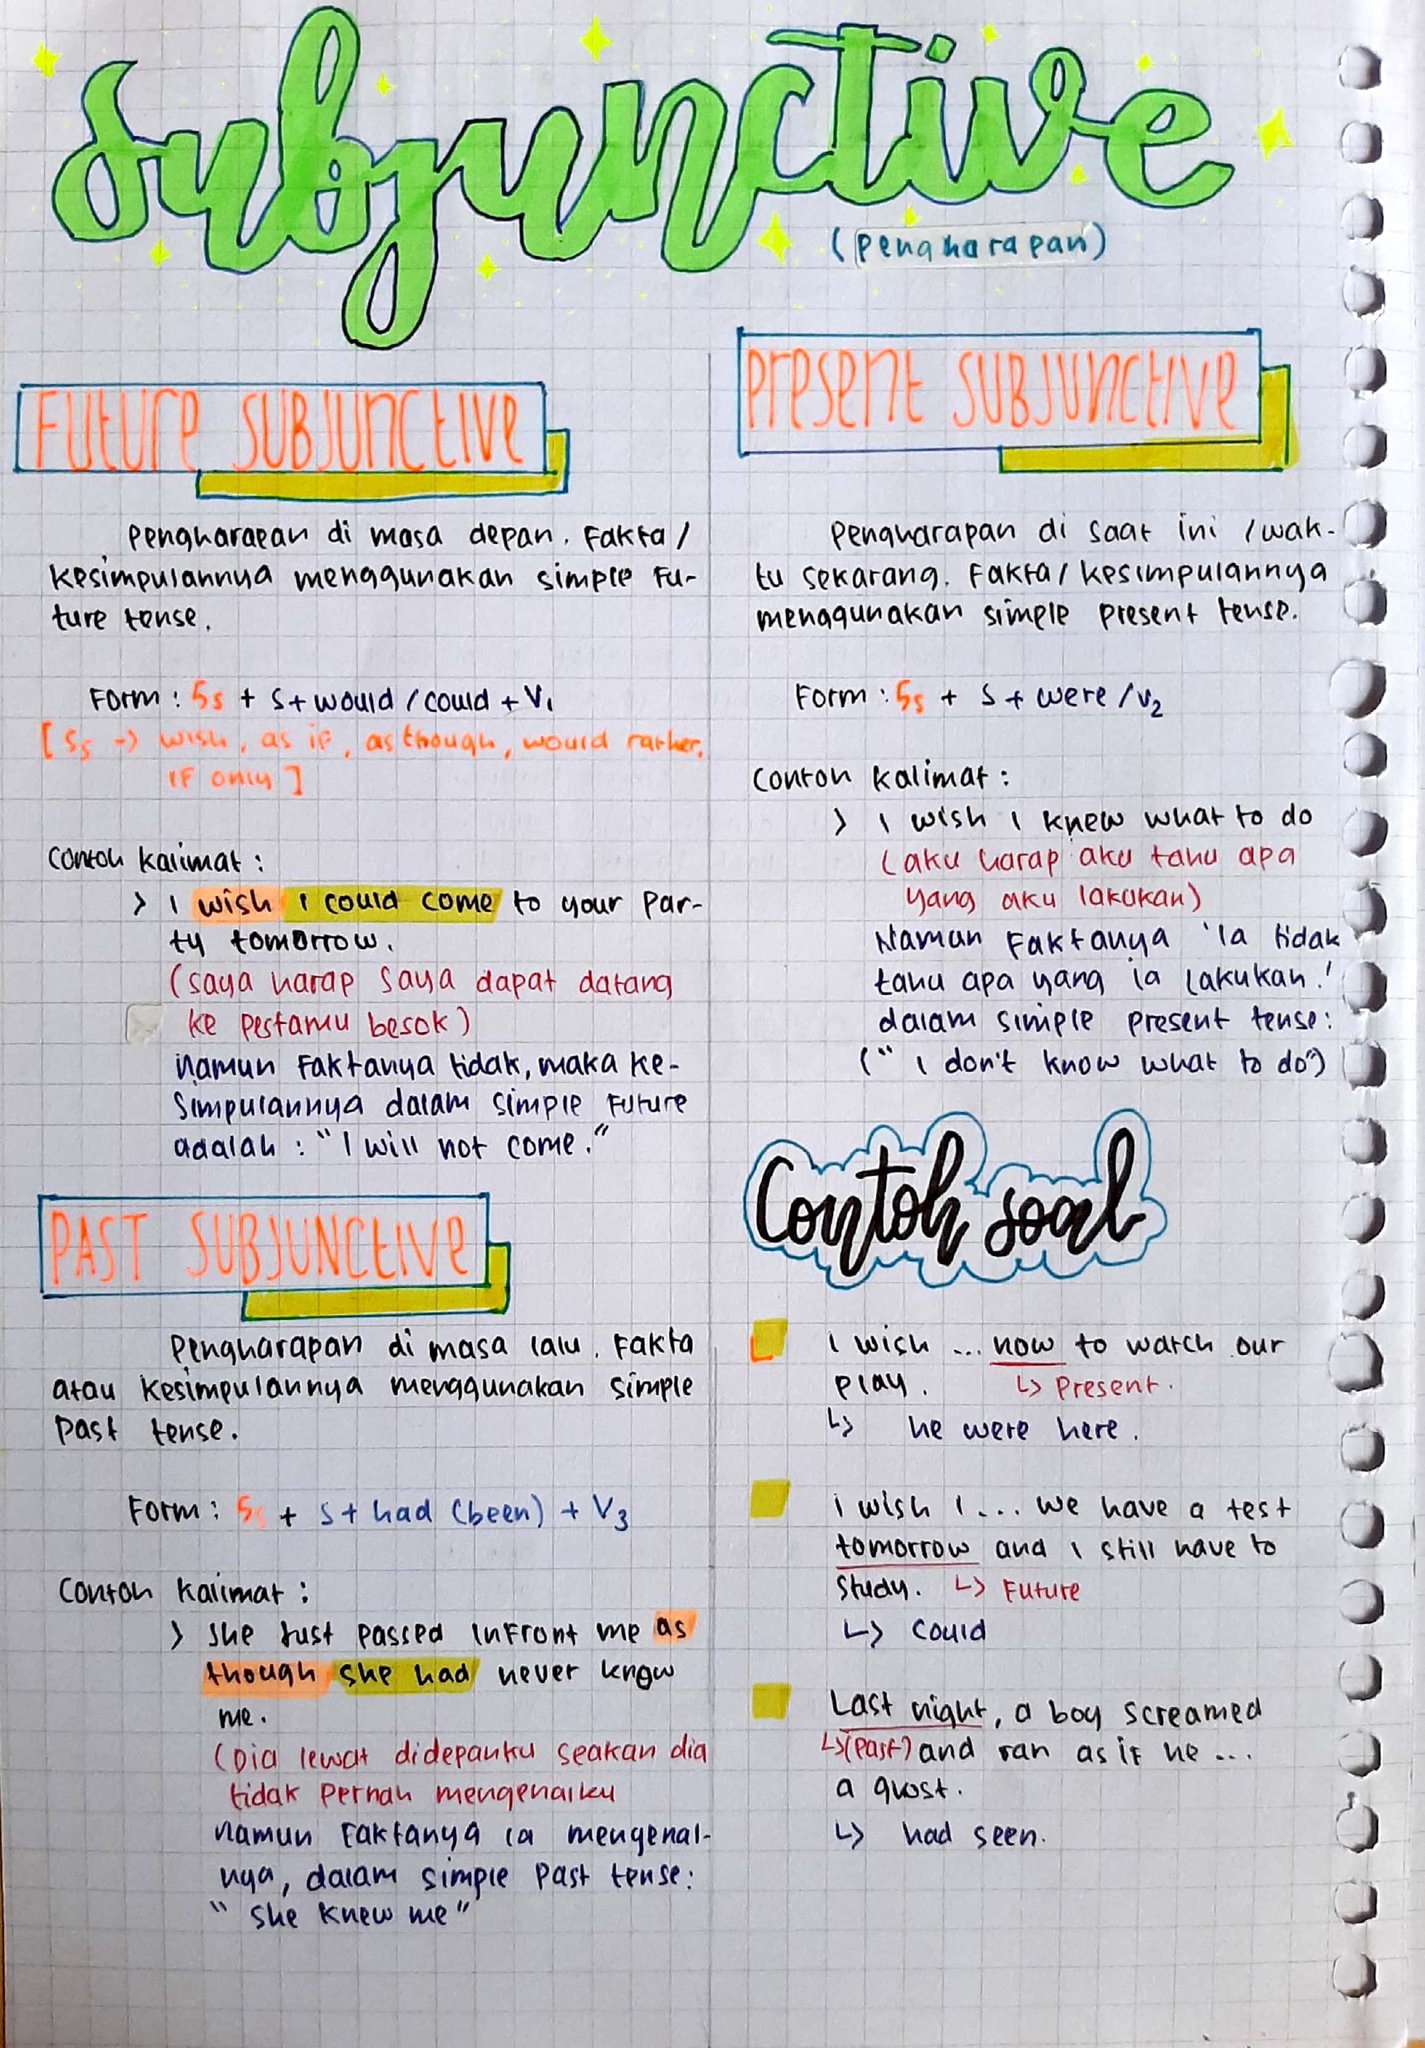 subjunctive
(pengharapan)
Future Subjunctive
Pengharapan di masa depan. Fakta/
kesimpulannya menggunakan simple fu-
ture tense.
Form: 5s + S+would/could+V1
[5s → wish, as if, as though, would rather,
if only]
Contoh kalimat:
> I wish I could come to your par-
ty tomorrow.
(saya harap saya dapat datang
ke pestamu besok)
Namun faktanya tidak, maka ke-
simpulannya dalam simple future
adalah : "I will not come."
Past Subjunctive
Pengharapan di masa lalu. Fakta
atau kesimpulannya menggunakan simple
past tense.
Form: 5s + S+had (been) + V3
Contoh kalimat:
> She just passed infront me as
though she had never know
me.
(Dia lewat didepanku seakan dia
tidak pernah mengenalku
Namun faktanya ia mengenal-
nya, dalam simple past tense:
"She knew me"
Present Subjunctive
Pengharapan di saat ini /wak-
tu sekarang. Fakta/kesimpulannya
menggunakan simple present tense.
Form: 5s + S+were/V2
Contoh kalimat:
> I wish I knew what to do
(aku harap aku tahu apa
yang aku lakukan)
Naman faktanya 'Ia tidak
tahu apa yang ia lakukan.'
dalam simple present tense:
("I don't know what to do")
Contoh soal
I wish ... now to watch our
play. ↳ Present.
↳ he were here.
I wish I ... we have a test
tomorrow and I still have to
study. ↳ Future
↳ could
Last night, a boy screamed
↳(past) and ran as if he ...
a ghost.
↳ had seen.